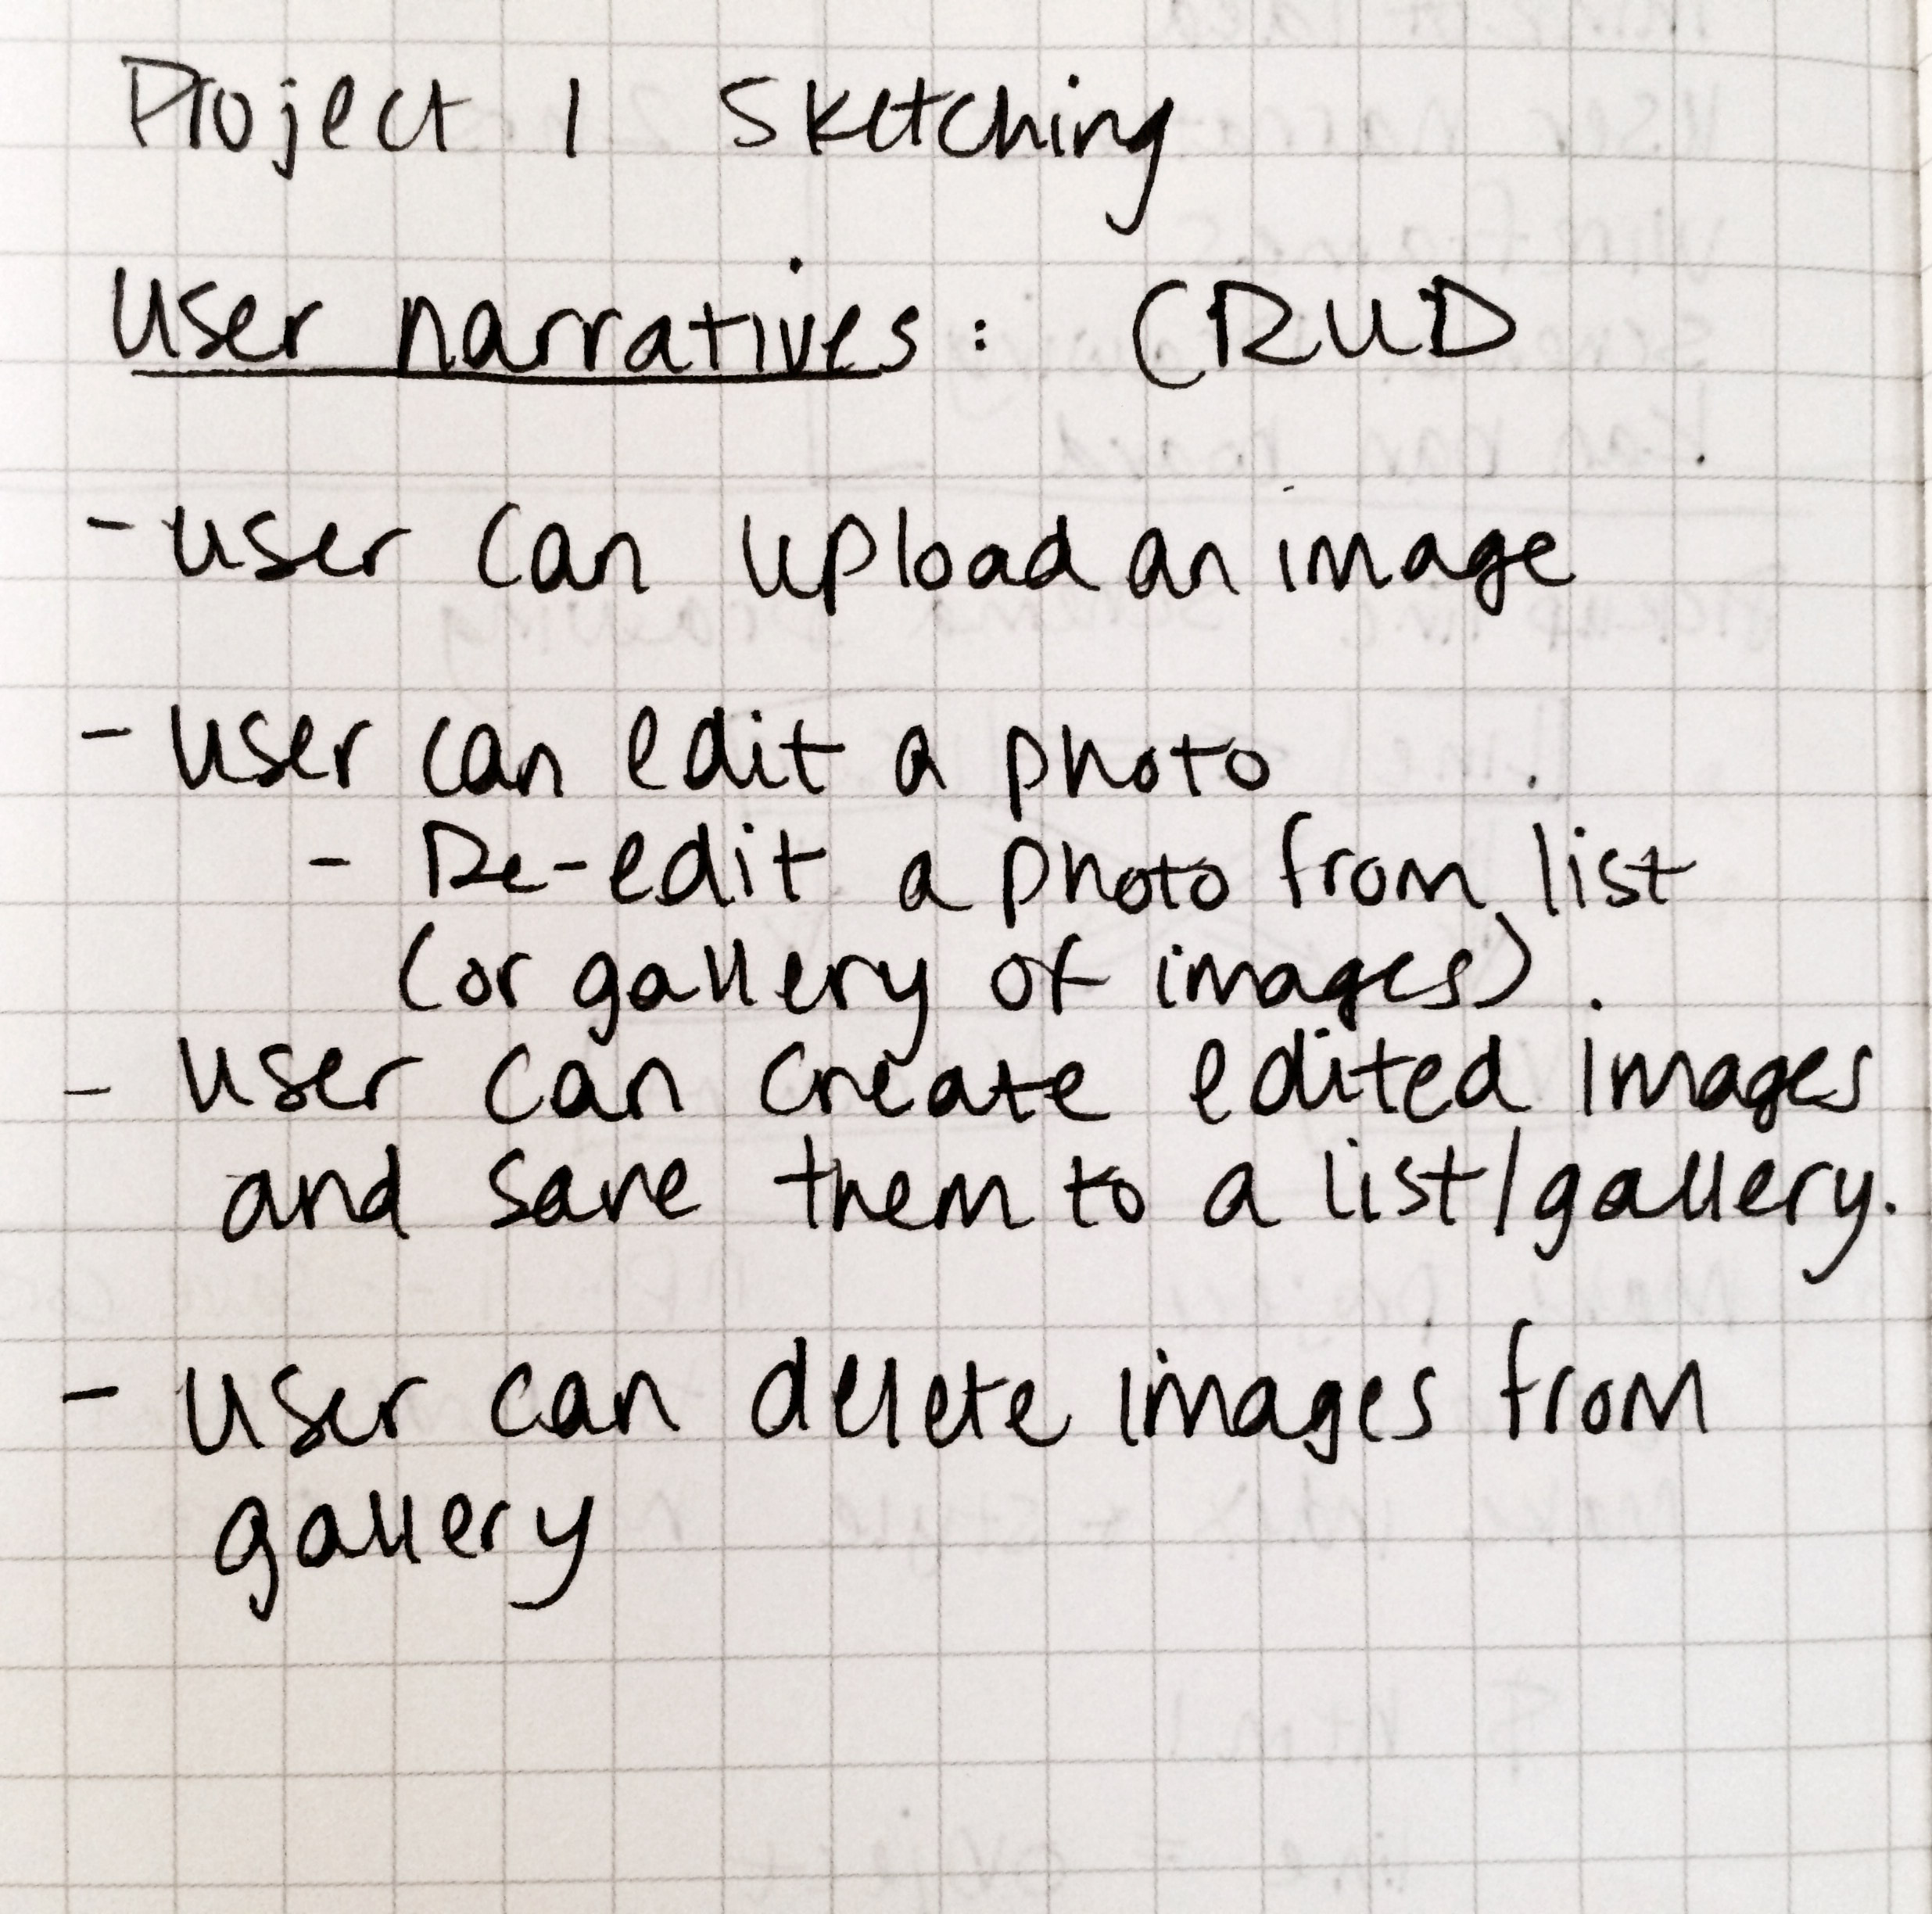 Project 1 Sketching
User narratives: CRUD
- User can upload an image
- User can edit a photo
- Re-edit a photo from list
(or gallery of images).
- User can create edited images
and save them to a list/gallery.
- User can delete images from
gallery